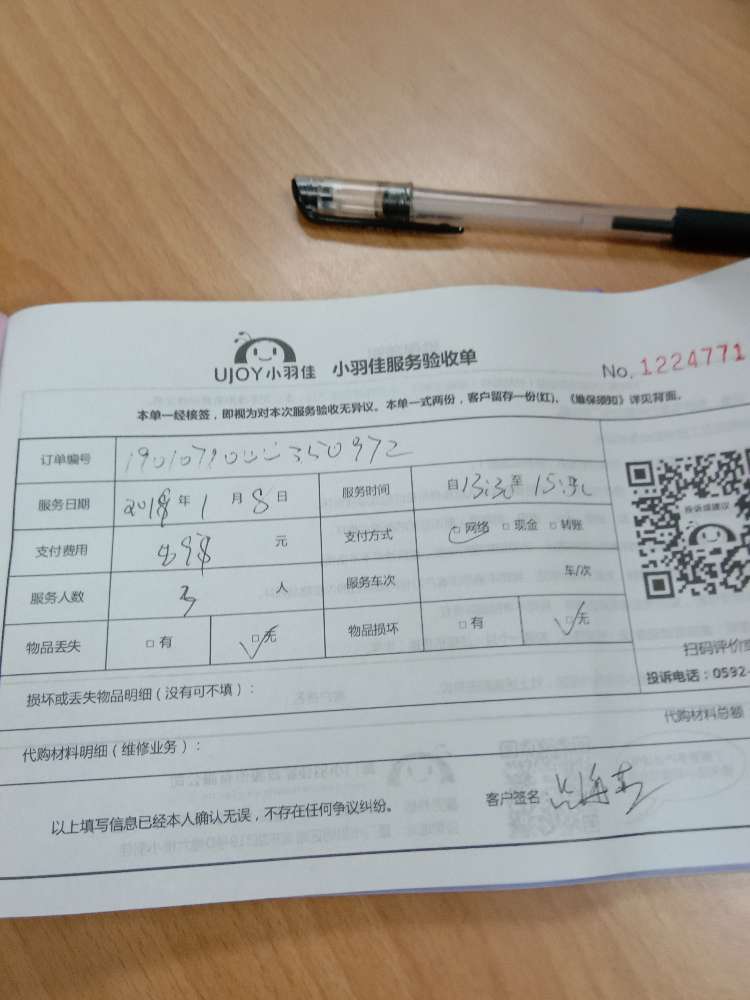 UJOY小羽佳 小羽佳服务验收单
No. 1224771
本单一经接签，即视为对本次服务验收无异议。本单一式两份，客户留存一份(红)、《维保须知》详见背面。
订单编号
服务日期 2018年1月8日 服务时间 自13:30至
支付费用 898 元 支付方式 □网络 □现金 □转账
服务人数 3 人 服务车次 车/次
物品丢失 □有 □无 物品损坏 □有 □无
投诉或建议
扫码评价
投诉电话：0592-
损坏或丢失物品明细（没有可不填）：
代购材料明细（维修业务）： 代购材料总额
以上填写信息已经本人确认无误，不存在任何争议纠纷。 客户签名